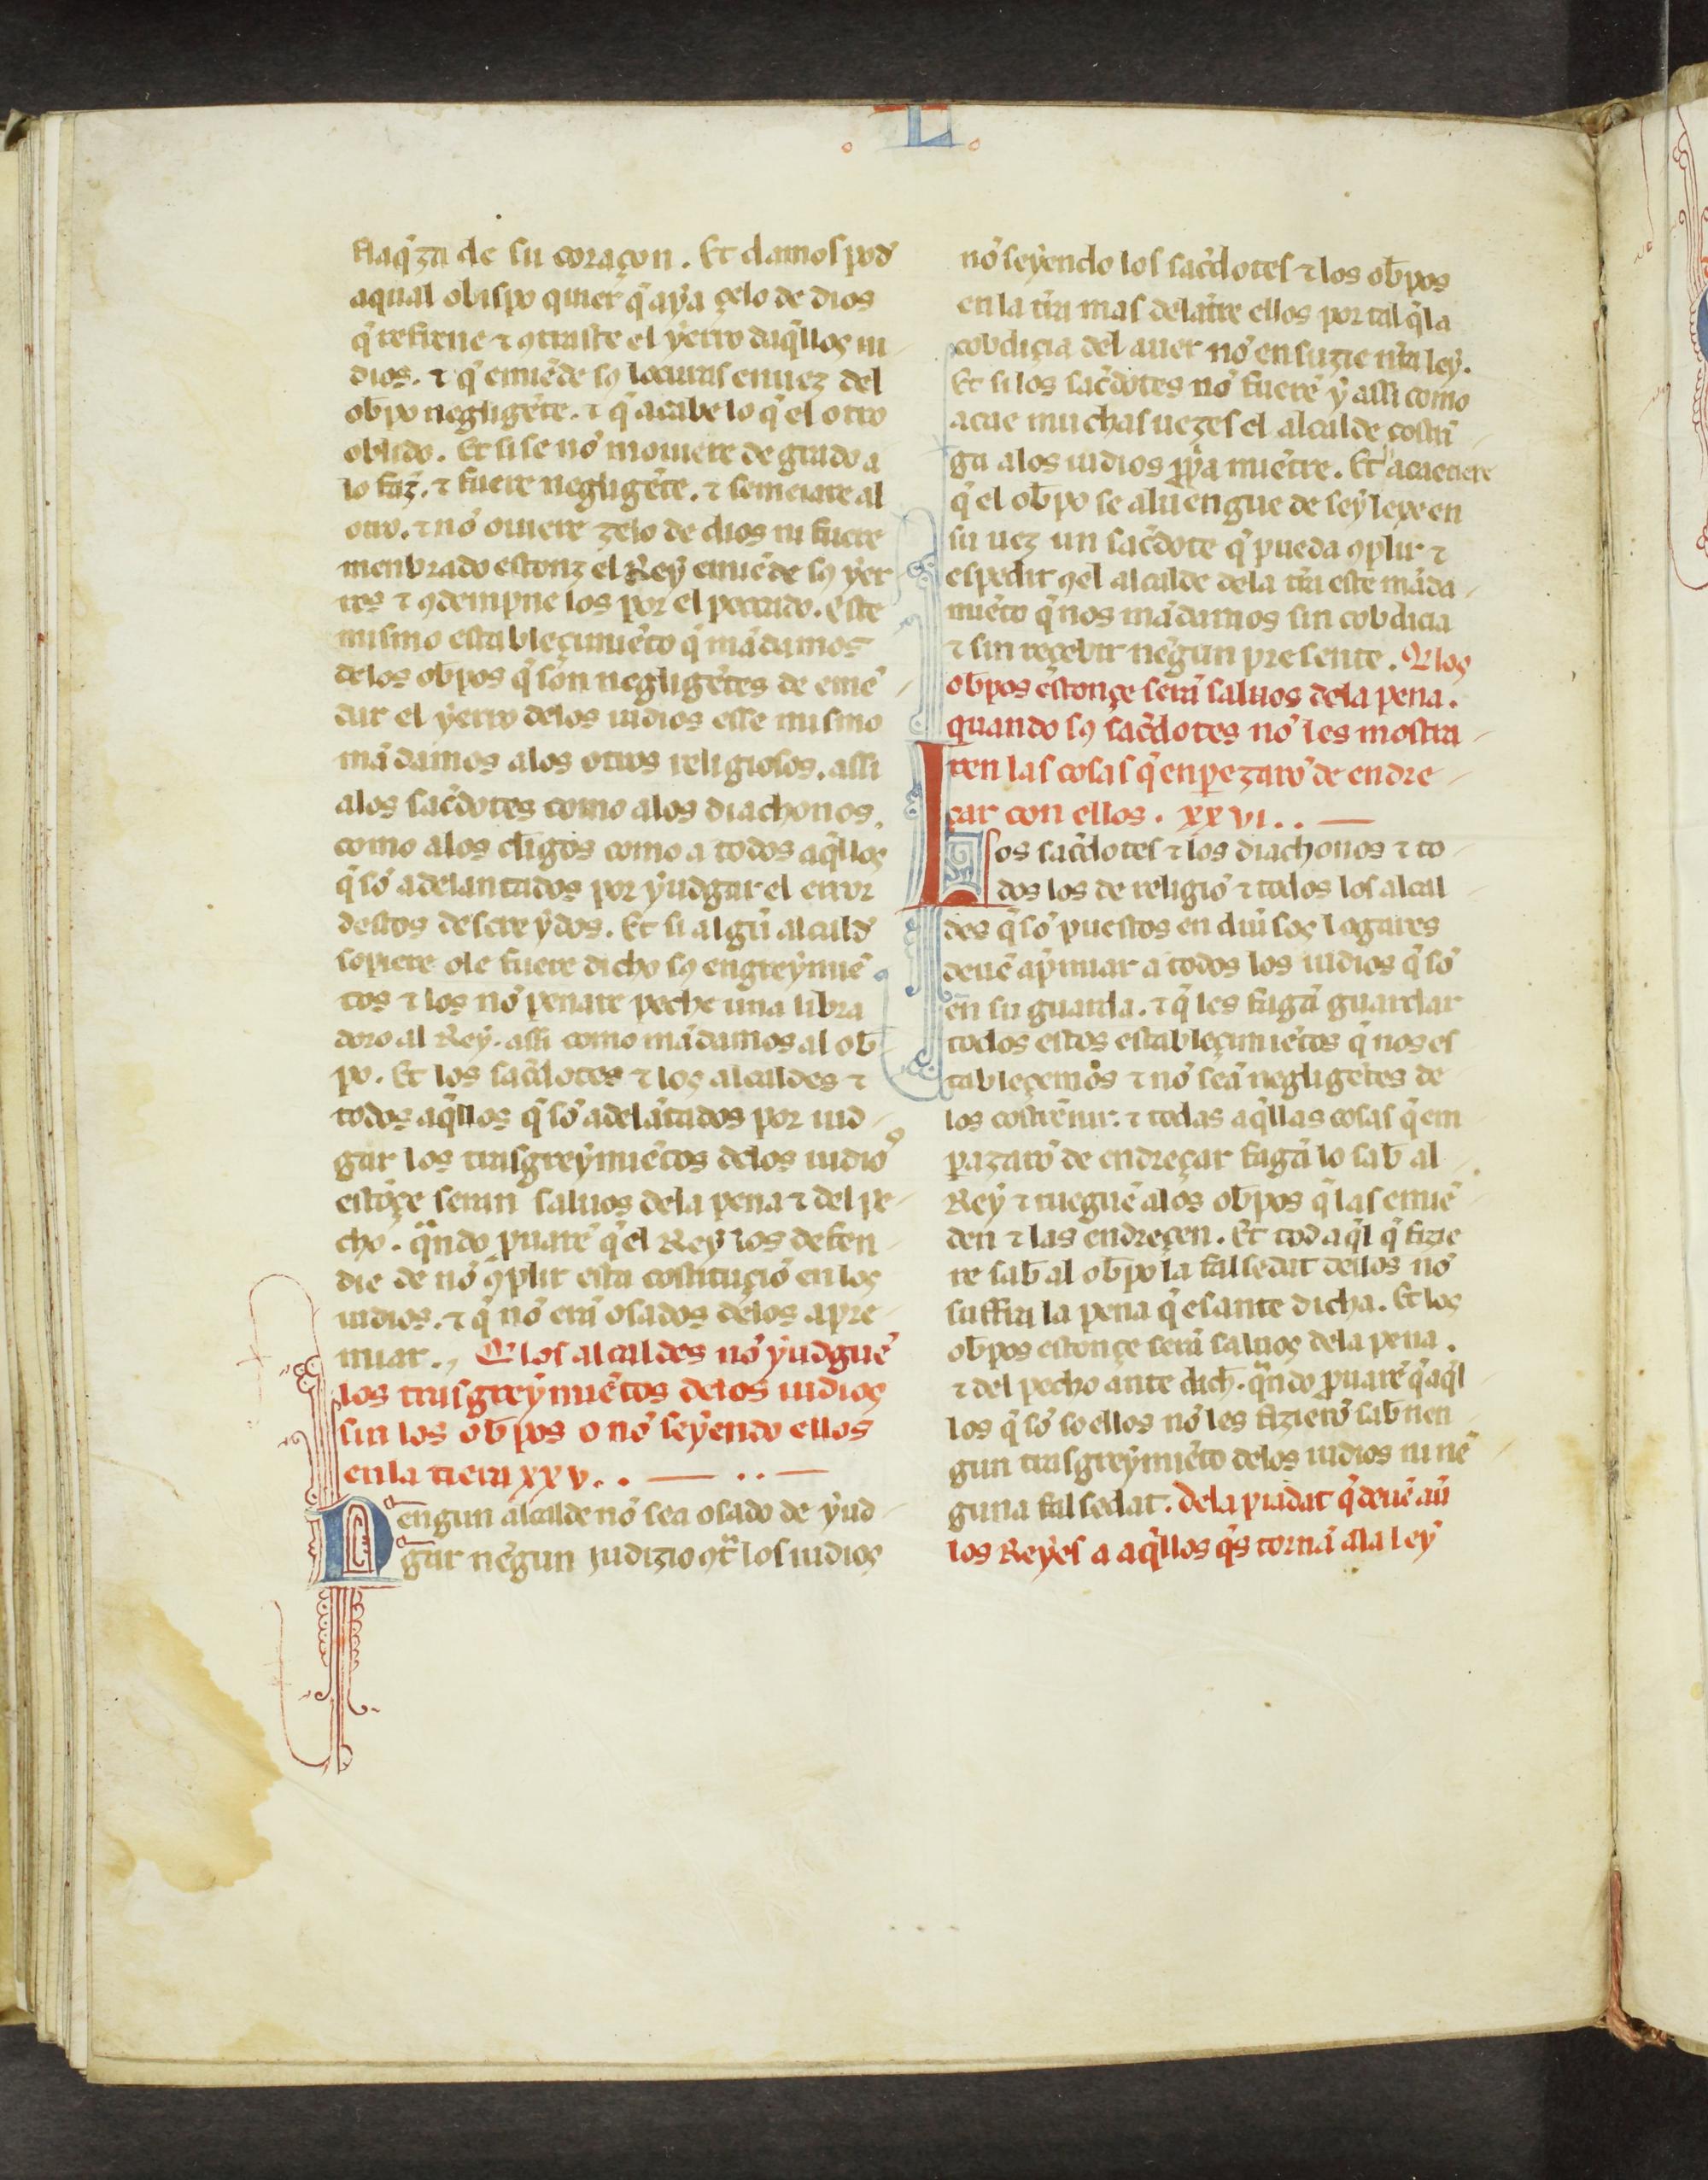 L
flaq̃za de su coraçon. Et damos pod̃
aqual obispo quier q̃ aya çelo de dios
q̃ refrene ⁊ ꝯtraste el yerro daq̃llos iu
dios. ⁊ q̃ emiẽde sꝯ locuras en uez del
ob̃po negligẽte. ⁊ q̃ acabe lo q̃ el otro
oblido. Et si se nõ mouiere de grado a
lo faz̃. ⁊ fuere negligẽte. ⁊ semeiare al
otro. ⁊ nõ ouiere zelo de dios ni fuere
menbrado estonz el Rey emiẽde sꝯ yer
ros ⁊ ꝯdempne los por el peccado. Este
mismo estableçimiẽto q̃ mãdamos
delos ob̃pos q̃ son negligẽtes de emẽ
dar el yerro delos iudios esse mismo
mãdamos alos otros religiosos. assi
alos sac̃dotes como alos diachonos.
como alos cl̃igos como a todos aq̃llos
q̃ sõ adelantados por yudgar el error
destos descreydos. Et si algũ alcald̃
sopiere ole fuere dicho sꝯ engreymiẽ
tos ⁊ los nõ penare peche una libra
doro al Rey. assi como mãdamos al ob̃
po. Et los sac̃dotes ⁊ los alcaldes ⁊
todos aq̃llos q̃ sõ adelãtados por iud
gar los trasgreymiẽtos delos iudios
estõçe seran saluos dela pena ⁊ del pe
cho. q̃ndo prouarẽ q̃ el Rey los defen
die de nõ ꝯplir esta costituçiõ en los
iudios. ⁊ q̃ nõ erã osados delos apre
miar. Q̃ los alcaldes nõ yudguẽ
los trasgreymiẽtos delos iudios
sin los ob̃pos o nõ seyendo ellos
en la tierra xxv..
Nengun alcalde nõ sea osado de yud
gar nẽgun yudizio ꝯt̃ los iudios
nõ seyendo los sac̃dotes ⁊ los ob̃pos
en la tr̃a mas delãtre ellos por tal q̃ la
cobdiçia del auer nõ ensuzie nr̃a ley.
Et si los sac̃dotes nõ fuerẽ y assi como
acae muchas uezes el alcalde costrĩ
ga alos iudios ꝓpia miẽtre. Et si acaeciere
q̃ el ob̃po se aluengue de sey lexe en
su uez un sac̃dote q̃ pueda ꝯplir ⁊
espedir ꝯel alcalde dela tr̃a este mãda
miẽto q̃ nos mãdamos sin cobdicia
⁊ sin reçebir nẽgun presente. Q̃ los
ob̃pos estonçe serã saluos dela pena.
quando sꝯ sac̃dotes nõ les mostra
ren las cosas q̃ enpezarõ de endre
çar con ellos. xxvi..
Los sac̃dotes ⁊ los diachonos ⁊ to
dos los de religiõ ⁊ todos los alcal
des q̃ sõ puestos en diũsos logares
deuẽ ap̃miar a todos los iudios q̃ sõ
en su guarda. ⁊ q̃ les fagã guardar
todos estos estableçimiẽtos q̃ nos es
tableçemos ⁊ nõ seã negligẽtes de
los costrẽnir. ⁊ todas aq̃llas cosas q̃ em
pazarõ de endreçar fagã lo sab̃ al
Rey ⁊ rueguẽ alos ob̃pos q̃ las emiẽ
den ⁊ las endreçen. Et tod aq̃l q̃ fizie
re sab̃ al ob̃po la falsedat dellos nõ
suffra la pena q̃ es ante dicha. Et los
ob̃pos estonçe serã saluos dela pena.
⁊ del pecho ante dich̃. q̃ndo prouarẽ q̃ aq̃l
los q̃ sõ so ellos nõ les fizierõ sab̃ nen
gun trasgreymiẽto delos iudios ni nẽ
guna falsedat. Dela piadat q̃ deuẽ auẽ
los Reyes a aq̃llos q̃s tornã ala ley